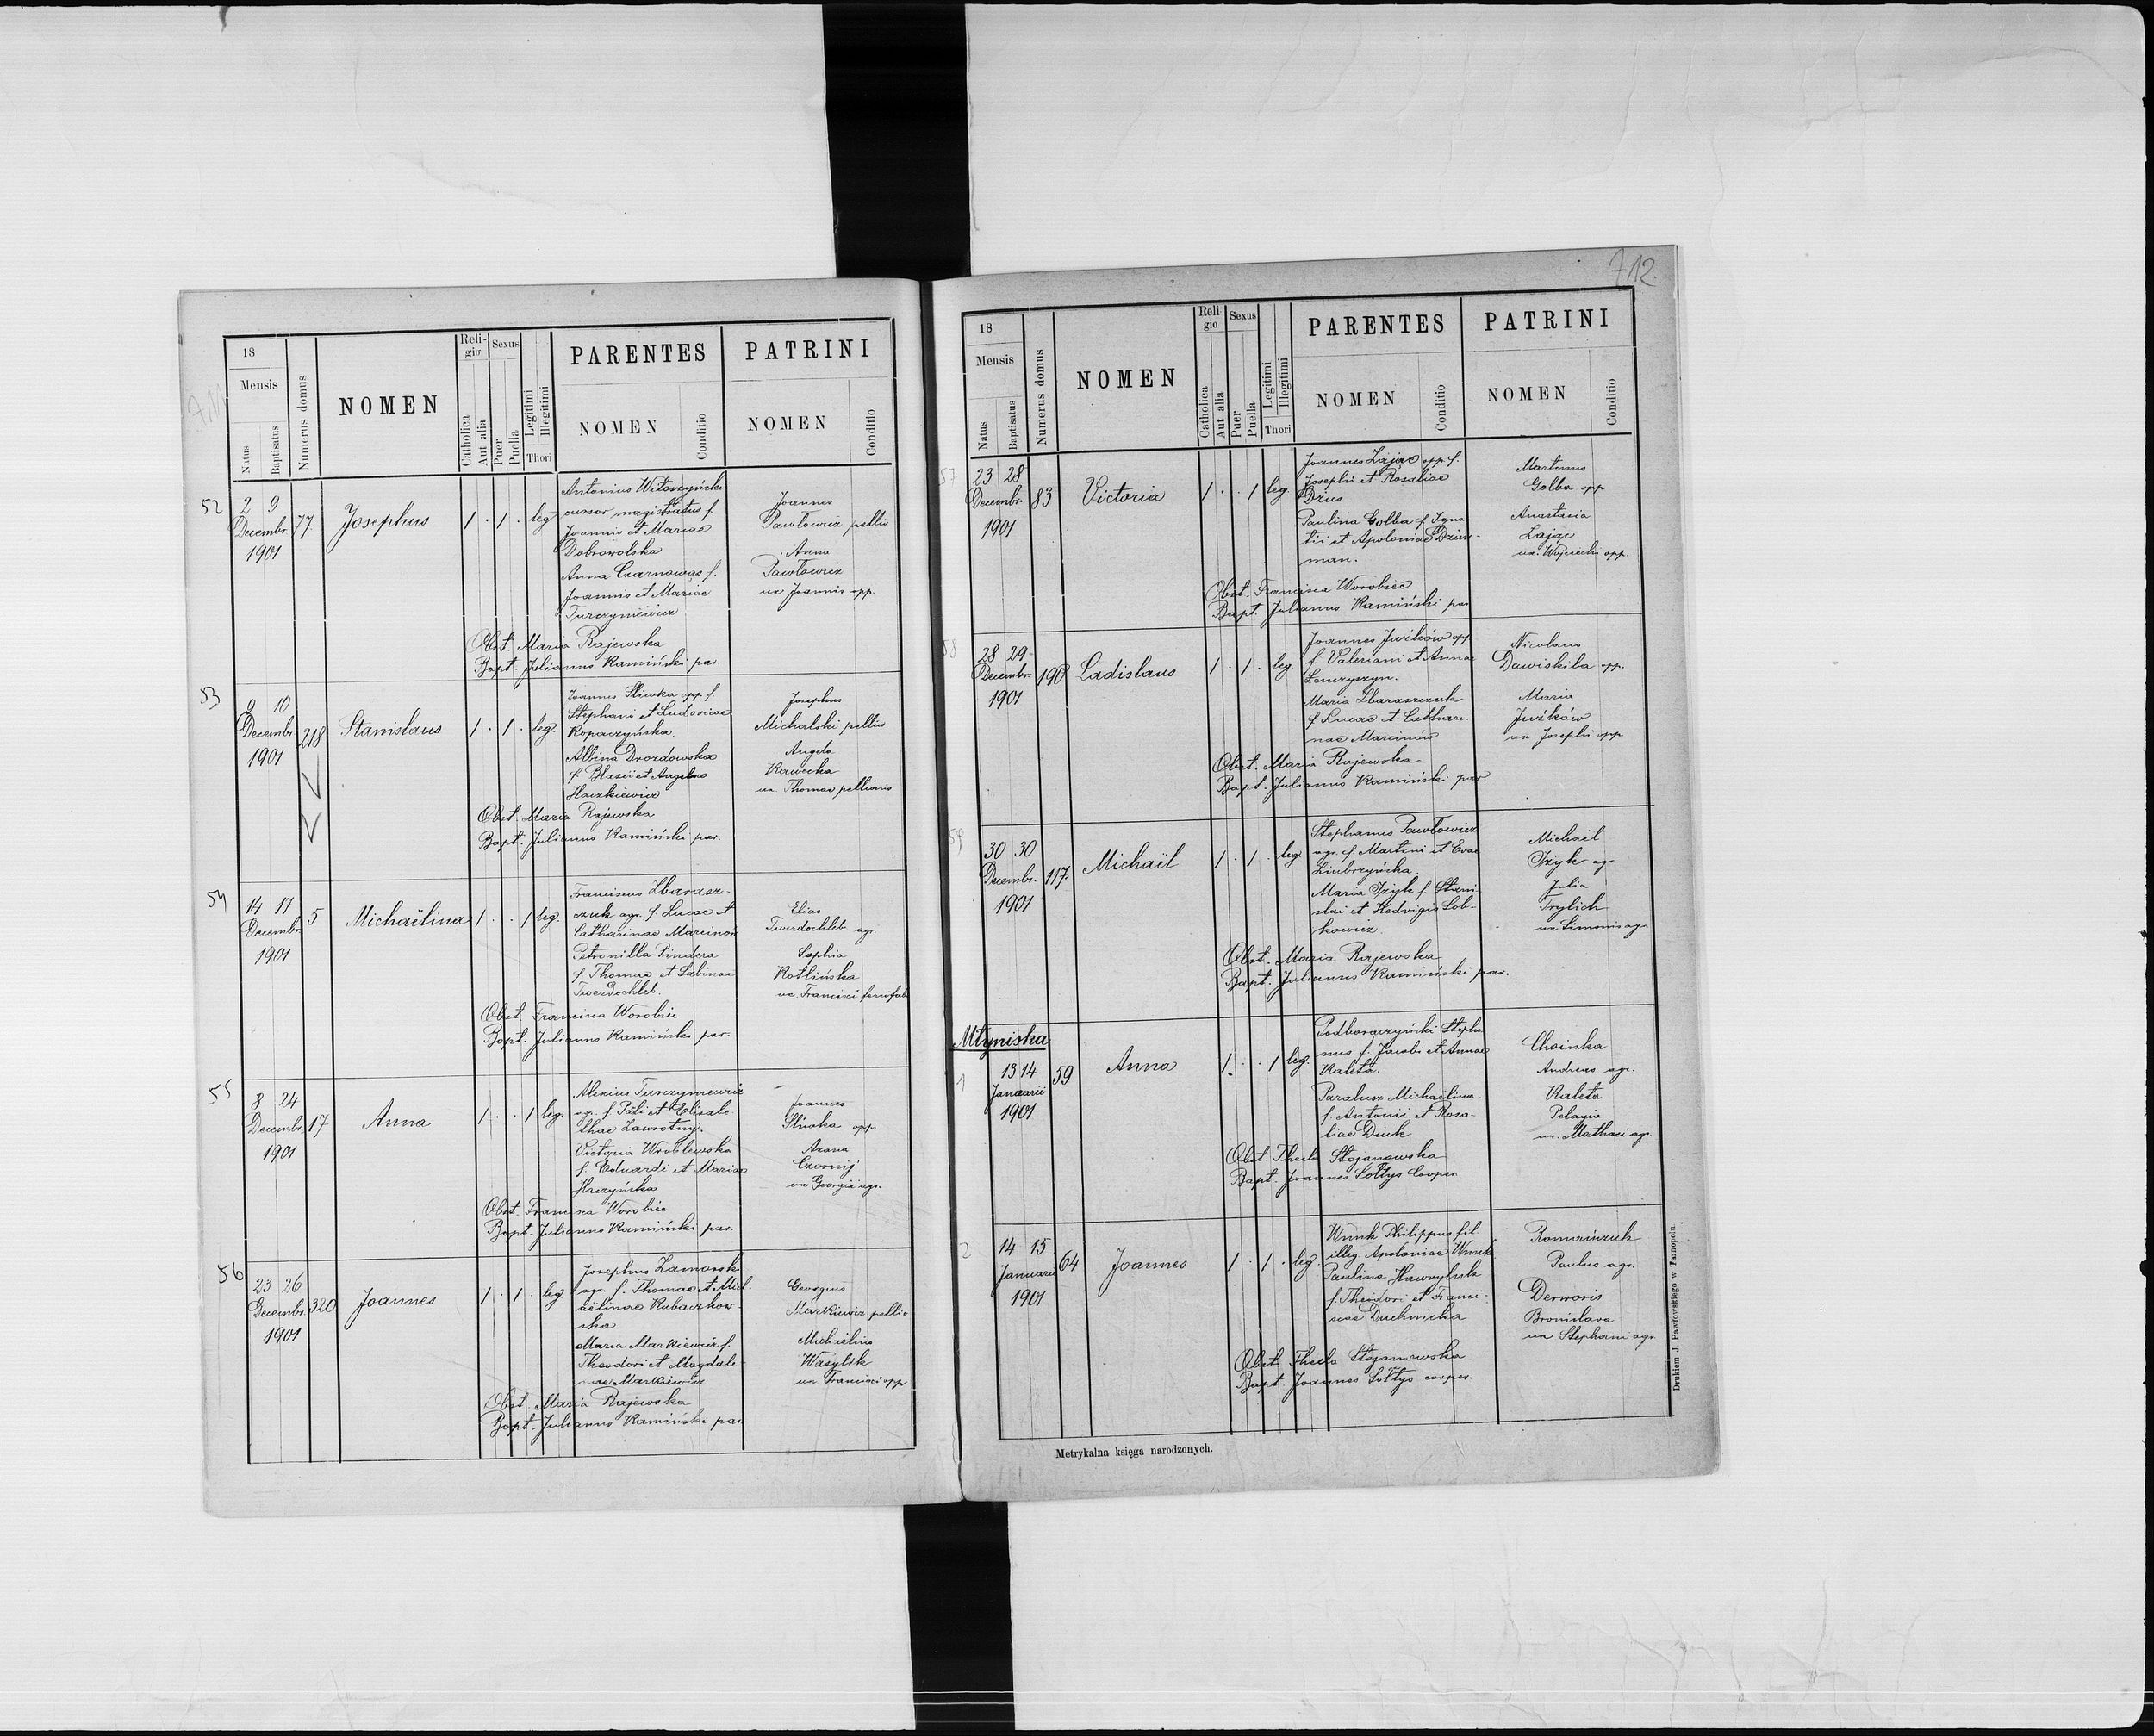 18
Mensis
Natus
Baptisatus
Numerus domus
NOMEN
Reli-
gio
Catholica
Aut alia
Sexus
Puer
Puella
Legitimi
Illegitimi
Thori
PARENTES
NOMEN
Conditio
PATRINI
NOMEN
Conditio
52
2 9
Decembr.
1901
77.
Josephus
1 . 1 . leg
Antonius Witoszyński
cursor magistratus f.
Joannis et Mariae
Dobrowolska
Anna Czarnowąs f.
Joannis et Mariae
Turczyniewicz
Joannes
Pawłowicz pellio
Anna
Pawłowicz
ux Joannis opp.
Obst. Maria Rajewska
Bapt. Julianus Kamiński par.
53
10
Decembr
1901
218
Stanislaus
1 . 1 . leg.
Joannes Śliwka opp. f.
Stephani et Ludovicae
Kopaczyńska.
Albina Drozdowska
f. Blasii et Angelae
Haczkiewicz
Josephus
Michalski pellio
Angela
Kawecka
ux. Thomae pellionis
Obst. Maria Rajewska
Bapt. Julianus Kamiński par.
54
14 17
Decembr.
1901
5
Michaëlina
1 . . 1 leg.
Franciscus Zbarasz-
czuk agr. f. Lucae et
Catharinae Marcinow
Petronilla Pindera
f. Thomae et Sabinae
Twerdochleb.
Elias
Twerdochleb agr.
Sophia
Kotlińska
ux. Francisci
Obst. Francisca Worobiec
Bapt. Julianus Kamiński par.
55
8 24
Decembr.
1901
17
Anna
1 . . 1 leg.
Alexius Turczyniewicz
agr. f. Pauli et Elisabe-
thae Zawrotny.
Victoria Wroblewska
f. Eduardi et Mariae
Haczyńska
Joannes
Śliwka opp
Czornij
ux Georgii agr.
Obst. Francisca Worobiec
Bapt. Julianus Kamiński par.
56
23 26
Decembr.
1901
320
Joannes
1 . 1 . leg
Josephus Zamorsk
agr. f. Thomae et Mich
aëlinae Kubaczkow-
ska
Maria Markiewicz f.
Theodori et Magdale-
nae Markiewicz
Georgius
Markiewicz pellio
Michaëlina
Wasylik
ux. Francisci opp
Obst. Maria Rajewska
Bapt. Julianus Kamiński par
712.
18
Mensis
Natus
Baptisatus
Numerus domus
NOMEN
Reli-
gio
Catholica
Aut alia
Sexus
Puer
Puella
Legitimi
Illegitimi
Thori
PARENTES
NOMEN
Conditio
PATRINI
NOMEN
Conditio
57
23 28
Decembr.
1901
83
Victoria
1 . . 1 leg.
Joannes Zając opp. f.
Josephi et Rosaliae
Dżus
Paulina Golba f. Igna
tii et Apoloniae Dziur-
man.
Martinus
Golba opp
Anastasia
Zając
ux. Wojciechi opp.
Obst. Francisca Worobiec
Bapt. Julianus Kamiński par
58
28 29
Decembr.
1901
190
Ladislaus
1 . 1 . leg
Joannes Juźków opp
f. Valeriani et Annae
Lonczyszyn.
Maria Zbaraszczuk
f. Lucae et Cathari-
nae Marcinów
Nicolaus
Dawiskiba opp.
Maria
Juźków
ux Josephi opp
Obst. Maria Rajewska
Bapt. Julianus Kamiński par.
59
30 30
Decembr.
1901
117.
Michaël
1 . 1 . leg
Stephanus Pawłowicz
agr. f. Martini et Evae
Maria Iżyk f. Stani-
slai et Hedvigis Sob-
kowicz.
Michaël
Iżyk agr
Julia
Trylich
ux Simonis agr.
Obst. Maria Rajewska
Bapt. Julianus Kamiński par.
Młyniska
1
13 14
Januarii
1901
59
Anna
1 . . 1 leg.
Podhoraczyński Stepha
nus f. Jacobi et Annae
Kaleta.
Paralusz Michaëlina
f. Antonii et Rosa-
liae Diuk
Choinka
Andreas agr.
Kaleta
Pelagia
ux. Mathaei agr.
Obst Thecla Stojanowska
Bapt. Joannes Sołtys Cooper
2
14 15
Januarii
1901
64
Joannes
1 . 1 . leg.
Wnuk Philippus fil.
illeg. Apoloniae Wnuk
Paulina Hawryluk
f. Theodori et Franci-
scae Duchnicka
Romańczuk
Paulus agr.
Derworis
Bronislava
ux Stephani agr
Obst. Thecla Stojanowska
Bapt Joannes Sołtys cooper.
Metrykalna księga narodzonych.
Drukiem J. Pawłowskiego w Tarnopolu.